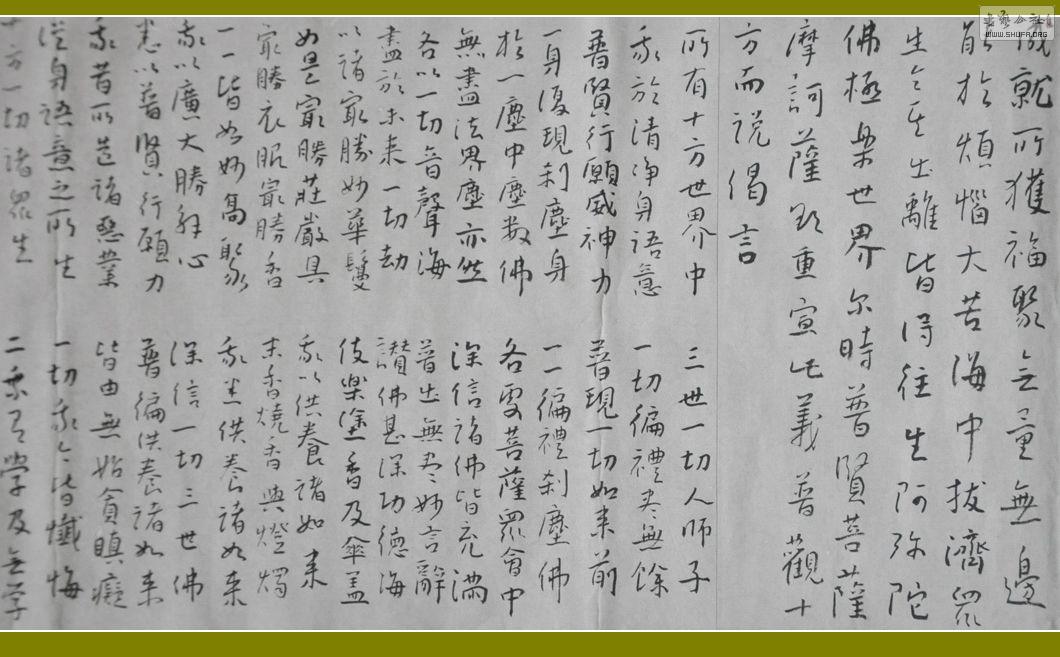 成就所獲福聚無量無邊
能於煩惱大苦海中拔濟眾
生令其出離皆得往生阿弥陀
佛極樂世界尔時普賢菩薩
摩訶薩欲重宣此義普觀十
方而説偈言
所有十方世界中 三世一切人師子
我於清淨身語意 一切徧禮尽無餘
普賢行願威神力 普現一切如来前
一身復現刹塵身 一一徧禮刹塵佛
於一塵中塵数佛 各處菩薩眾會中
無盡法界塵亦然 深信諸佛皆充滿
各以一切音聲海 普出無尽妙言辭
盡於未来一切劫 讚佛甚深功德海
以諸最勝妙華鬘 伎樂塗香及傘盖
如是最勝莊嚴具 我以供養諸如来
最勝衣服最勝香 末香燒香與燈燭
一一皆如妙高聚 我悉供養諸如来
我以廣大勝解心 深信一切三世佛
悉以普賢行願力 普徧供養諸如来
我昔所造諸惡業 皆由無始貪瞋癡
從身語意之所生 一切我今皆懺悔
十方一切諸眾生 二乘有學及无學
书法公社
WWW.SHUFA.ORG